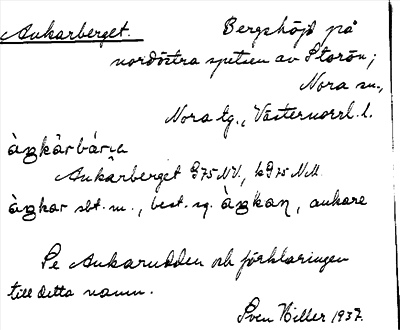 Ankarberget. Bergshöjd på
nordöstra spetsen av Storön;
Nora sn.,
Nora tg., Västernorrl. l.
àŋkàrbárɩa
Ankarberget G75NV., kG75 NV.
àŋkar sbt. m., best. sg. àŋkan, ankare
Se Ankarudden och förklaringen
till detta namn.
Sven Hiller 1937.